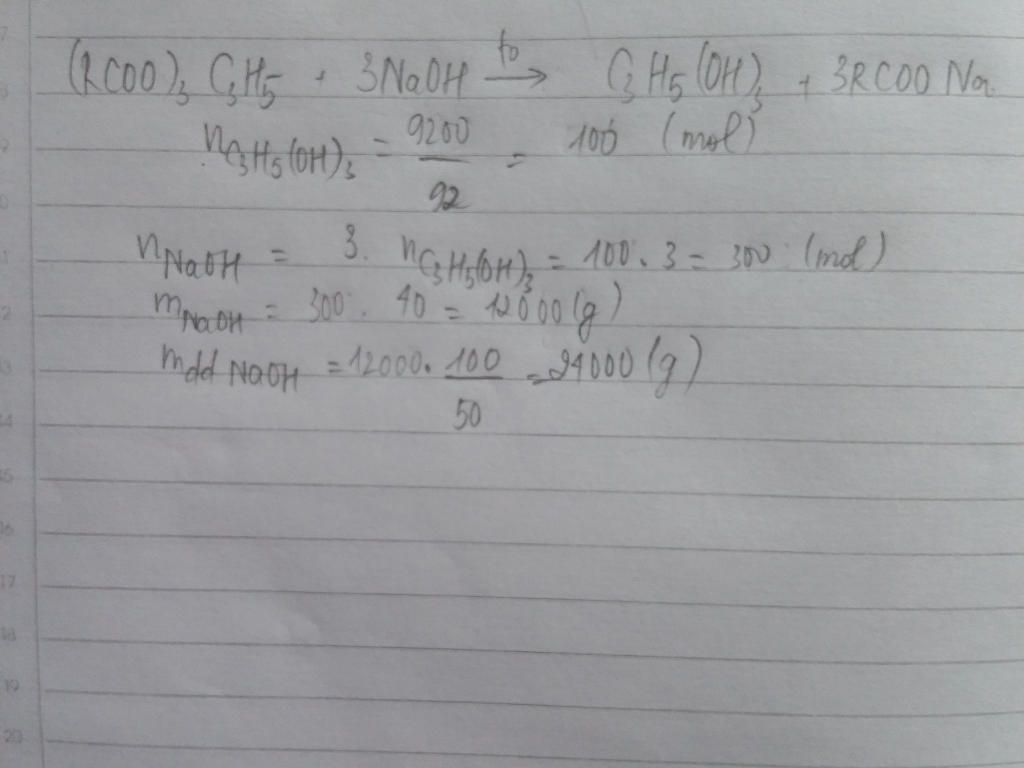 (RCOO)₃ C₃H₅ + 3NaOH →(t⁰) C₃H₅(OH)₃ + 3RCOO Na
n C₃H₅(OH)₃ = 9200/92 = 100 (mol)
n NaOH = 3. n C₃H₅(OH)₃ = 100.3 = 300 (mol)
m NaOH = 300. 40 = 12000 (g)
mdd NaOH = 12000. 100/50 = 24000 (g)